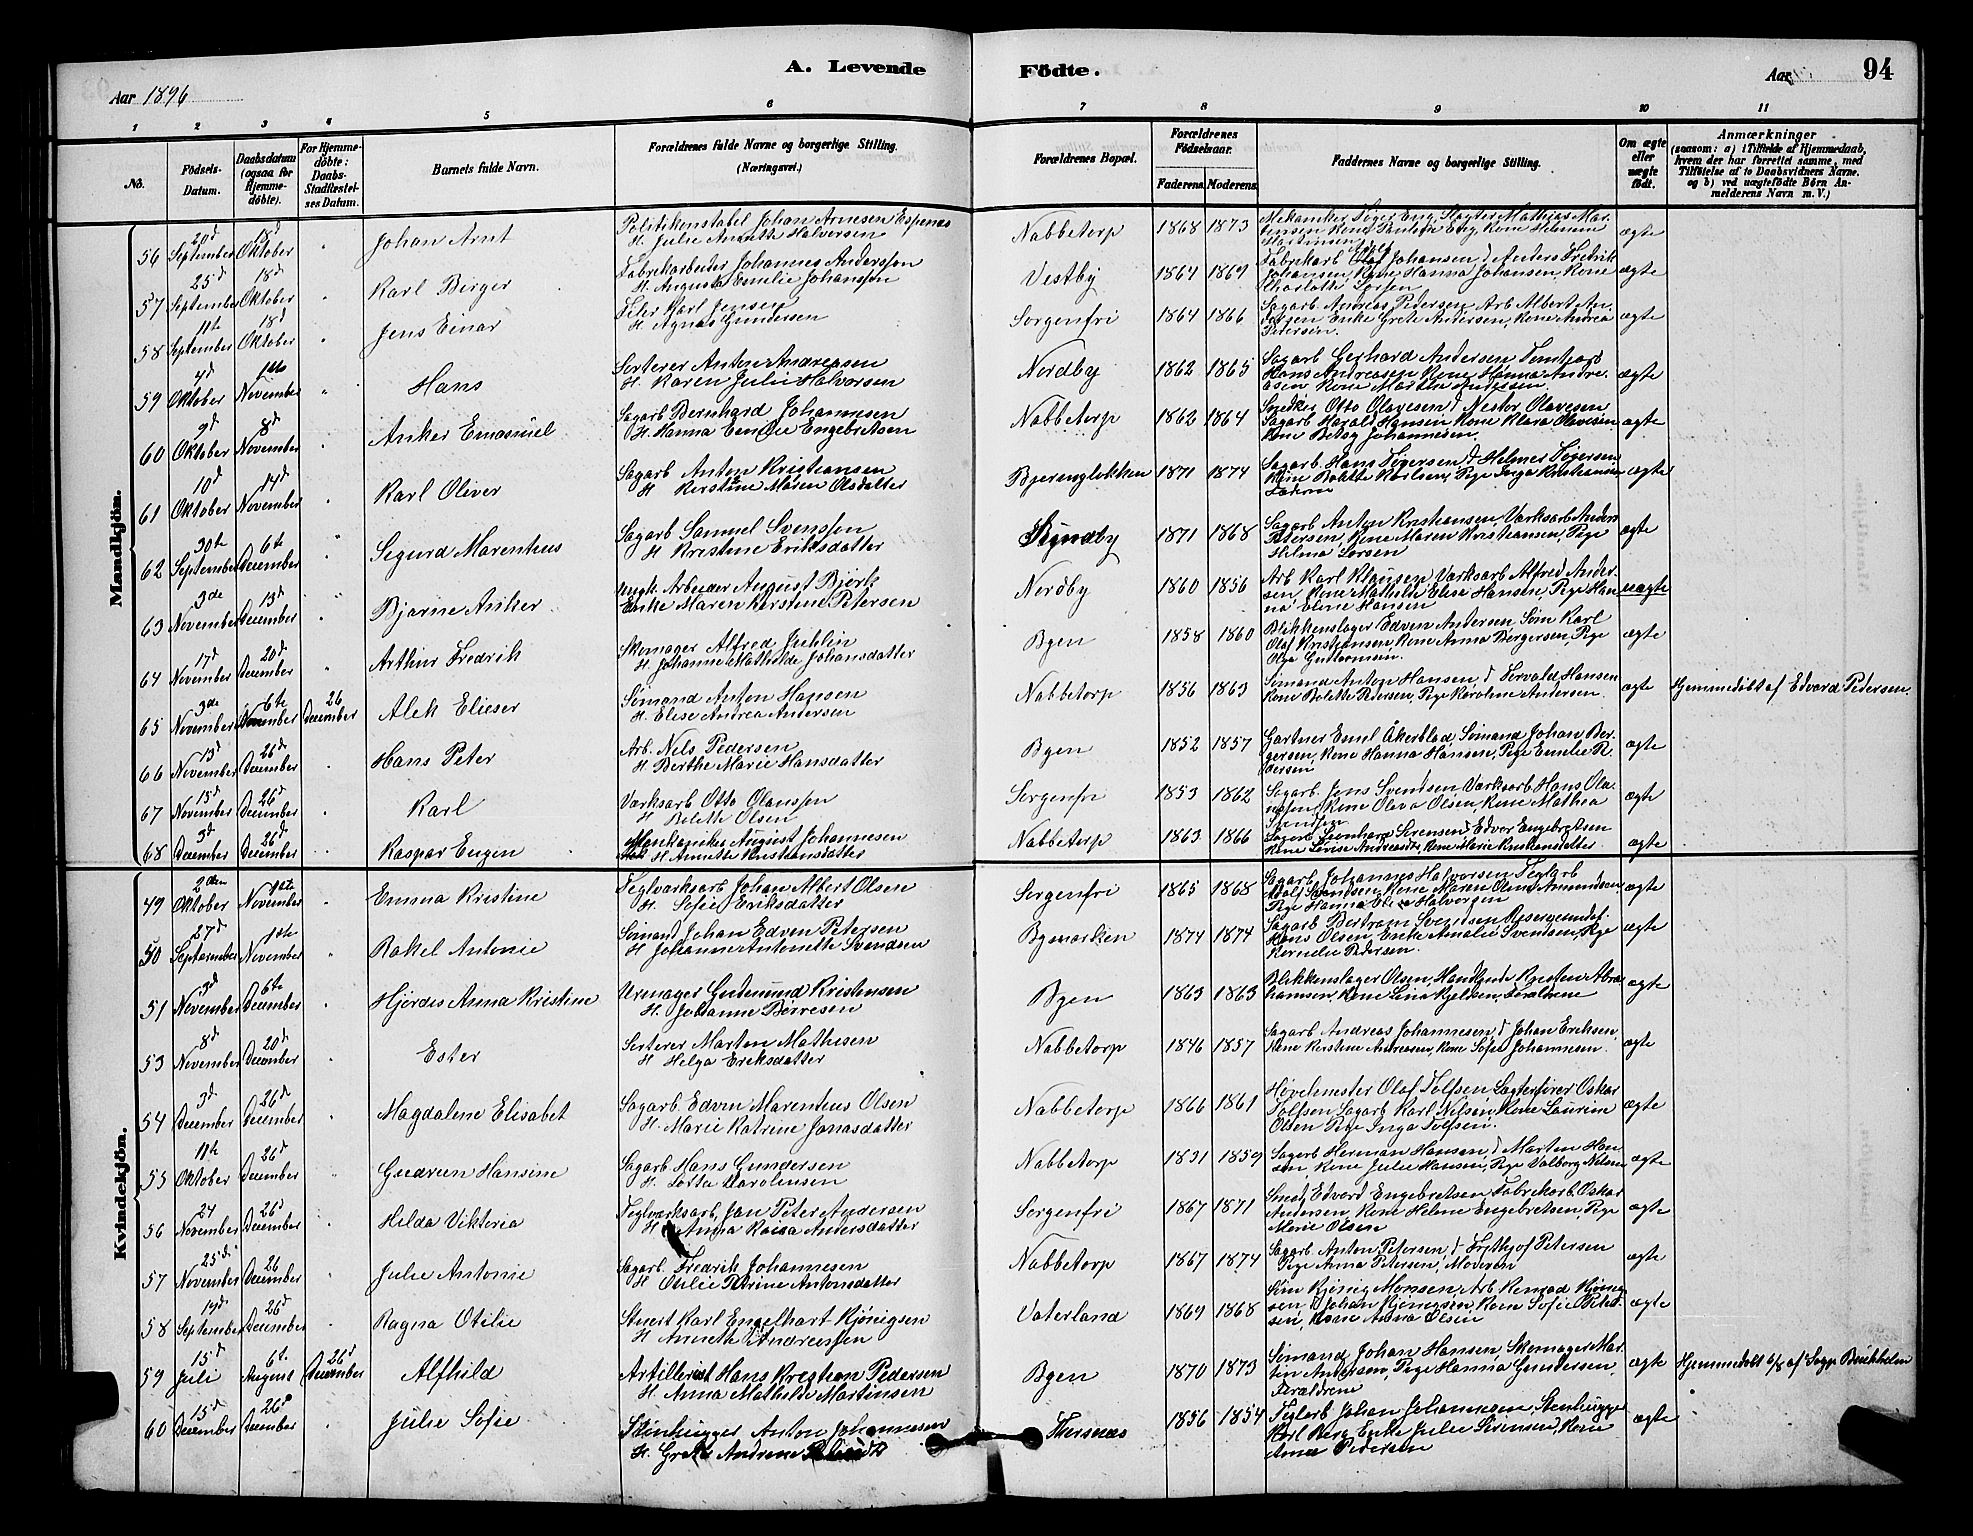 A. Levende Födte.
Aar 1896
Aar 94
1 2 3 4 5 6 7 8 9 10 11
No.
Födsels-Datum.
Daabsdatum (ogsaa for Hjemme-döbte).
For Hjemme-döbte: Daabs-Stadfæstel-ses Datum.
Barnets fulde Navn.
Forældrenes fulde Navne og borgerlige Stilling. (Næringsvei.)
Forældrenes Bopæl.
Forældrenes Födselsaar.
Faderens. Moderens.
Faddernes Navne og borgerlige Stilling.
Om ægte eller uægte födt.
Anmærkninger (saasom: a) i Tilfælde af Hjemmedaab, hvem der har forrettet samme, med Tilföielse af to Daabsvidners Navne. og b) ved uægtefödte Börn An-melderens Navn m. V.)
Mandkjön.
56 20d September 18d Oktober Johan Arnt Politikonstabel Johan Arnesen Espenæs
H. Julie Annette Halvorsen Nabbetorp 1868 1873 ægte
57 25d September 18d Oktober Karl Birger Fabrikarbeider Johannes Anderssen
H. Augusta Emilie Johanssen Vestby 1864 1869 Fabrikarb Olaf Johansen, Anders Fredrik
Johansen, Kone Hanna Johansen, Kone
Charlotte Larsen ægte
58 11te September 18d Oktober Jens Einar Filer Karl Jensen
H. Agnes Gundersen Sorgenfri 1864 1866 Sagarb Andreas Pedersen Arb Albert An-
dersen Enke Grete Andersen, Kone Andrea
Petersen. ægte
59 4d Oktober 1ste November Hans Sorterer Anton Andreasen
H. Karen Julie Halvorsen Nordby 1862 1865 Sagarb Gerhard Andersen Tomtearb
Hans Andreasen Kone Hanna Andre-
asen Kone Martha Andersen. ægte
60 9d Oktober 8d November Anker Emanuel Sagarb Bernhard Johannesen
H. Hanna Emilie Engebretsen Nabbetorp 1862 1864 Snedker Otto Olavesen, Nestor Olavesen
Sagarb Harald Hansen Kone Klara Olavesen
Kone Betsy Johannesen. ægte
61 10d Oktober 14d November Karl Oliver Sagarb Anton Kristiansen
H Kerstine Maren Olsdatter Bjerengløkken 1871 1874 Sagarb. Hans Tøgersen Helmer Tøgersen
Kone Bolette Karlsen, Pige Inga Kristiansen ægte
62 30te September 6te December Sigurd Marentius Sagarb Samuel Svenssen
H Kristine Eriksdatter 1871 1868 Sagarb Anton Kristiansen, Værksarb Anders
Petersen, Kone Maren Kristiansen, Pige
Hilma Larsen ægte
63 3de November 13d December Bjarne Anker ungk. Arbeider August Björk
Enke Maren Kerstine Petersen Nordby 1860 1856 Arb Karl Klausen, Værksarb Alfred Ander-
sen, Kone Mathilde Elise Hansen, Pige Han-
na Eline Hansen uægte
64 17d November 20d December Arthur Fredrik Skomager Alfred Jublin
H. Johanne Mathilde Johansdatter Byen 1858 1860 Blikkenslager Edven Andersen Søn Karl
Olaf Kristiansen, Kone Anna Bergersen, Pige
Olga Guttormsen. ægte
65 3de November 6te November 26 December Alek Elieser Sömand Anton Hansen
H. Elise Andrea Andersen Nabbetorp 1856 1863 Sömand Anton Hansen, Torvald Hansen
Kone Bolette Petersen, Pige Karoline Andersen. ægte Hjemmedöbt af Edvard Pedersen.
66 13d November 26d December Hans Peter Arb. Nils Pedersen
H Berthe Marie Hansdatter Byen 1852 1857 Gartner Emil Åkerblad, Sömand Johan Ber-
gersen, Kone Hanna Hansen, Pige Emilie P-
dersen ægte
67 15d November 26d December Karl Værksarb Otto Olanssen
H Bolette Olsen Sorgenfri 1853 1862 Sagarb. Jens Svendsen Værksarb. Hans Ola-
nssen, Kone Oleva Olsen, Kone Mathea
Svendsen ægte
68 3d December 26d December Kaspar Eugen Mekaniker August Johannesen
H Annette Kristiansdatter Nabbetorp 1863 1866 Sagarb Leonhard Sörensen, Edvar Engebretsen
Kone Lovise Andreasdt, Kone Marie Kristiansdatter ægte
Kvindekjön.
49 2den Oktober 1ste November Emma Kristine Teglværksarb Johan Albert Olsen
H. Sofie Eriksdatter Sorgenfri 1865 1868 Sagarb. Johannes Halvorsen Teglarb
Adolf Svendsen, Kone Maren Olava Amundsen,
Pige Hanna Eline Halvorsen ægte
50 27d September 1ste November Rakel Antonie Sömand Johan Edven Petersen
H Johanne Antonette Svendsen Bymarken 1874 1874 Sagarb Bertram Svendsen
Hans Olsen, Enke Amalie Svendsen, Pige
Kornelia Pedersen. ægte
51 3d November 6te December Hjördis Anna Kristine Urmager Gudmund Kristensen
H. Johanne Börresen Byen 1863 1863 Blikkenslager Olsen, Handlende Kristen Abra-
hamsen, Kone Lina Kjelsen, Forældrene ægte
53 8d November 20d December Ester Sorterer Marten Mathisen
H Helga Eriksdatter Nabbetorp 1846 1857 Sagarb Andreas Johannesen, Johan Eriksen
Kone Kerstine Andreasen, Kone Sofie Johannesen. ægte
54 3d December 26d December Magdalene Elisabet Sagarb. Edven Marentius Olsen
H. Marie Katrine Jonasdatter Nabbetorp 1866 1861 Høvelmester Olaf Tolfsen, Sagterfører Oskar
Tolfsen Sagarb Karl Nilsen, Kone Laurine
Olsen Pige Inga Tolfsen. ægte
55 11te Oktober 26d December Gudrun Hansine Sagarb. Hans Gundersen
H. Lotta Karolensen Nabbetorp 1831 1859 Sagarb Herman Hansen, Marten Han-
sen, Kone Julie Hansen, Pige Valborg Nilsen ægte
56 24 November 26d December Hilda Viktoria Teglværksarb. Jan Peter Andersen
H Anna Kaisa Andersdatter Sorgenfri 1867 1871 Smed, Edvard Engebretsen Fabrikarb. Oskar
Andersen, Kone Helene Engebretsen, Pige
Marie Olsen ægte
57 25d November 26 December Julie Antonie Sagarb. Fredrik Johannesen
H. Otilie Petrine Antonsdatter Nabbetorp 1867 1874 Sagarb. Anton Petersen, Frithjof Petersen
Pige Anna Petersen, Moderen ægte
58 19d September 26d December Ragna Otilie Stuert Karl Engelhart Kjönigsen
H. Annette Andreassen Vaterland 1869 1868 Monsen, Arb Konrad Kjönig-
sen, Johan Kjönigsen, Kone Sofie Peter-
sen, Kone Anna Olsen ægte
59 15d Juli 6te August 26d December Alfhild Artillerist Hans Kristian Pedersen
H. Anna Mathilde Martinsen Byen 1870 1873 Sömand Johan Hansen, Skomager Mar-
tin Antonsen, Pige Hanna Gundersen,
Forældrene ægte Hjemmedöbt 6/8 af Sogp Birkholm
60 15d December 26d December Julie Sofie Stenhugger Anton Johannesen
H. Grethe Andrine 1856 1854 Teglarb Johan Johannesen, Stenhugger
Karl Berg Enke Julie Sörensen, Kone
Anna Pedersen ægte